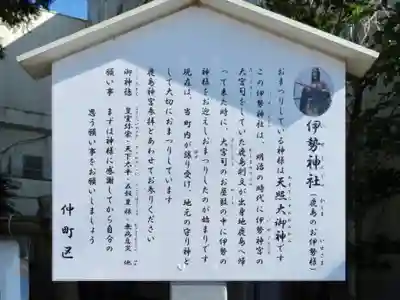 伊勢神社
（鹿島のお伊勢様）
おまつりしている神様は天照大御神です
この伊勢神社は、明治の時代に伊勢神宮の
大宮司をしていた鹿島則文が出身地鹿島へ帰
って来た時に、大宮司のお屋敷の中に伊勢の
神様をお迎えしおまつりしたのが始まりです
現在は、当町内が譲り受け、地元の守り神と
して大切におまつりしています
鹿島神宮参拝とあわせてお参りください
御神徳　皇室弥栄・天下太平・五穀豊穣・無病息災　他
願い事　まずは神様に感謝してから自分の
思う願い事をお願いしましょう
仲町区